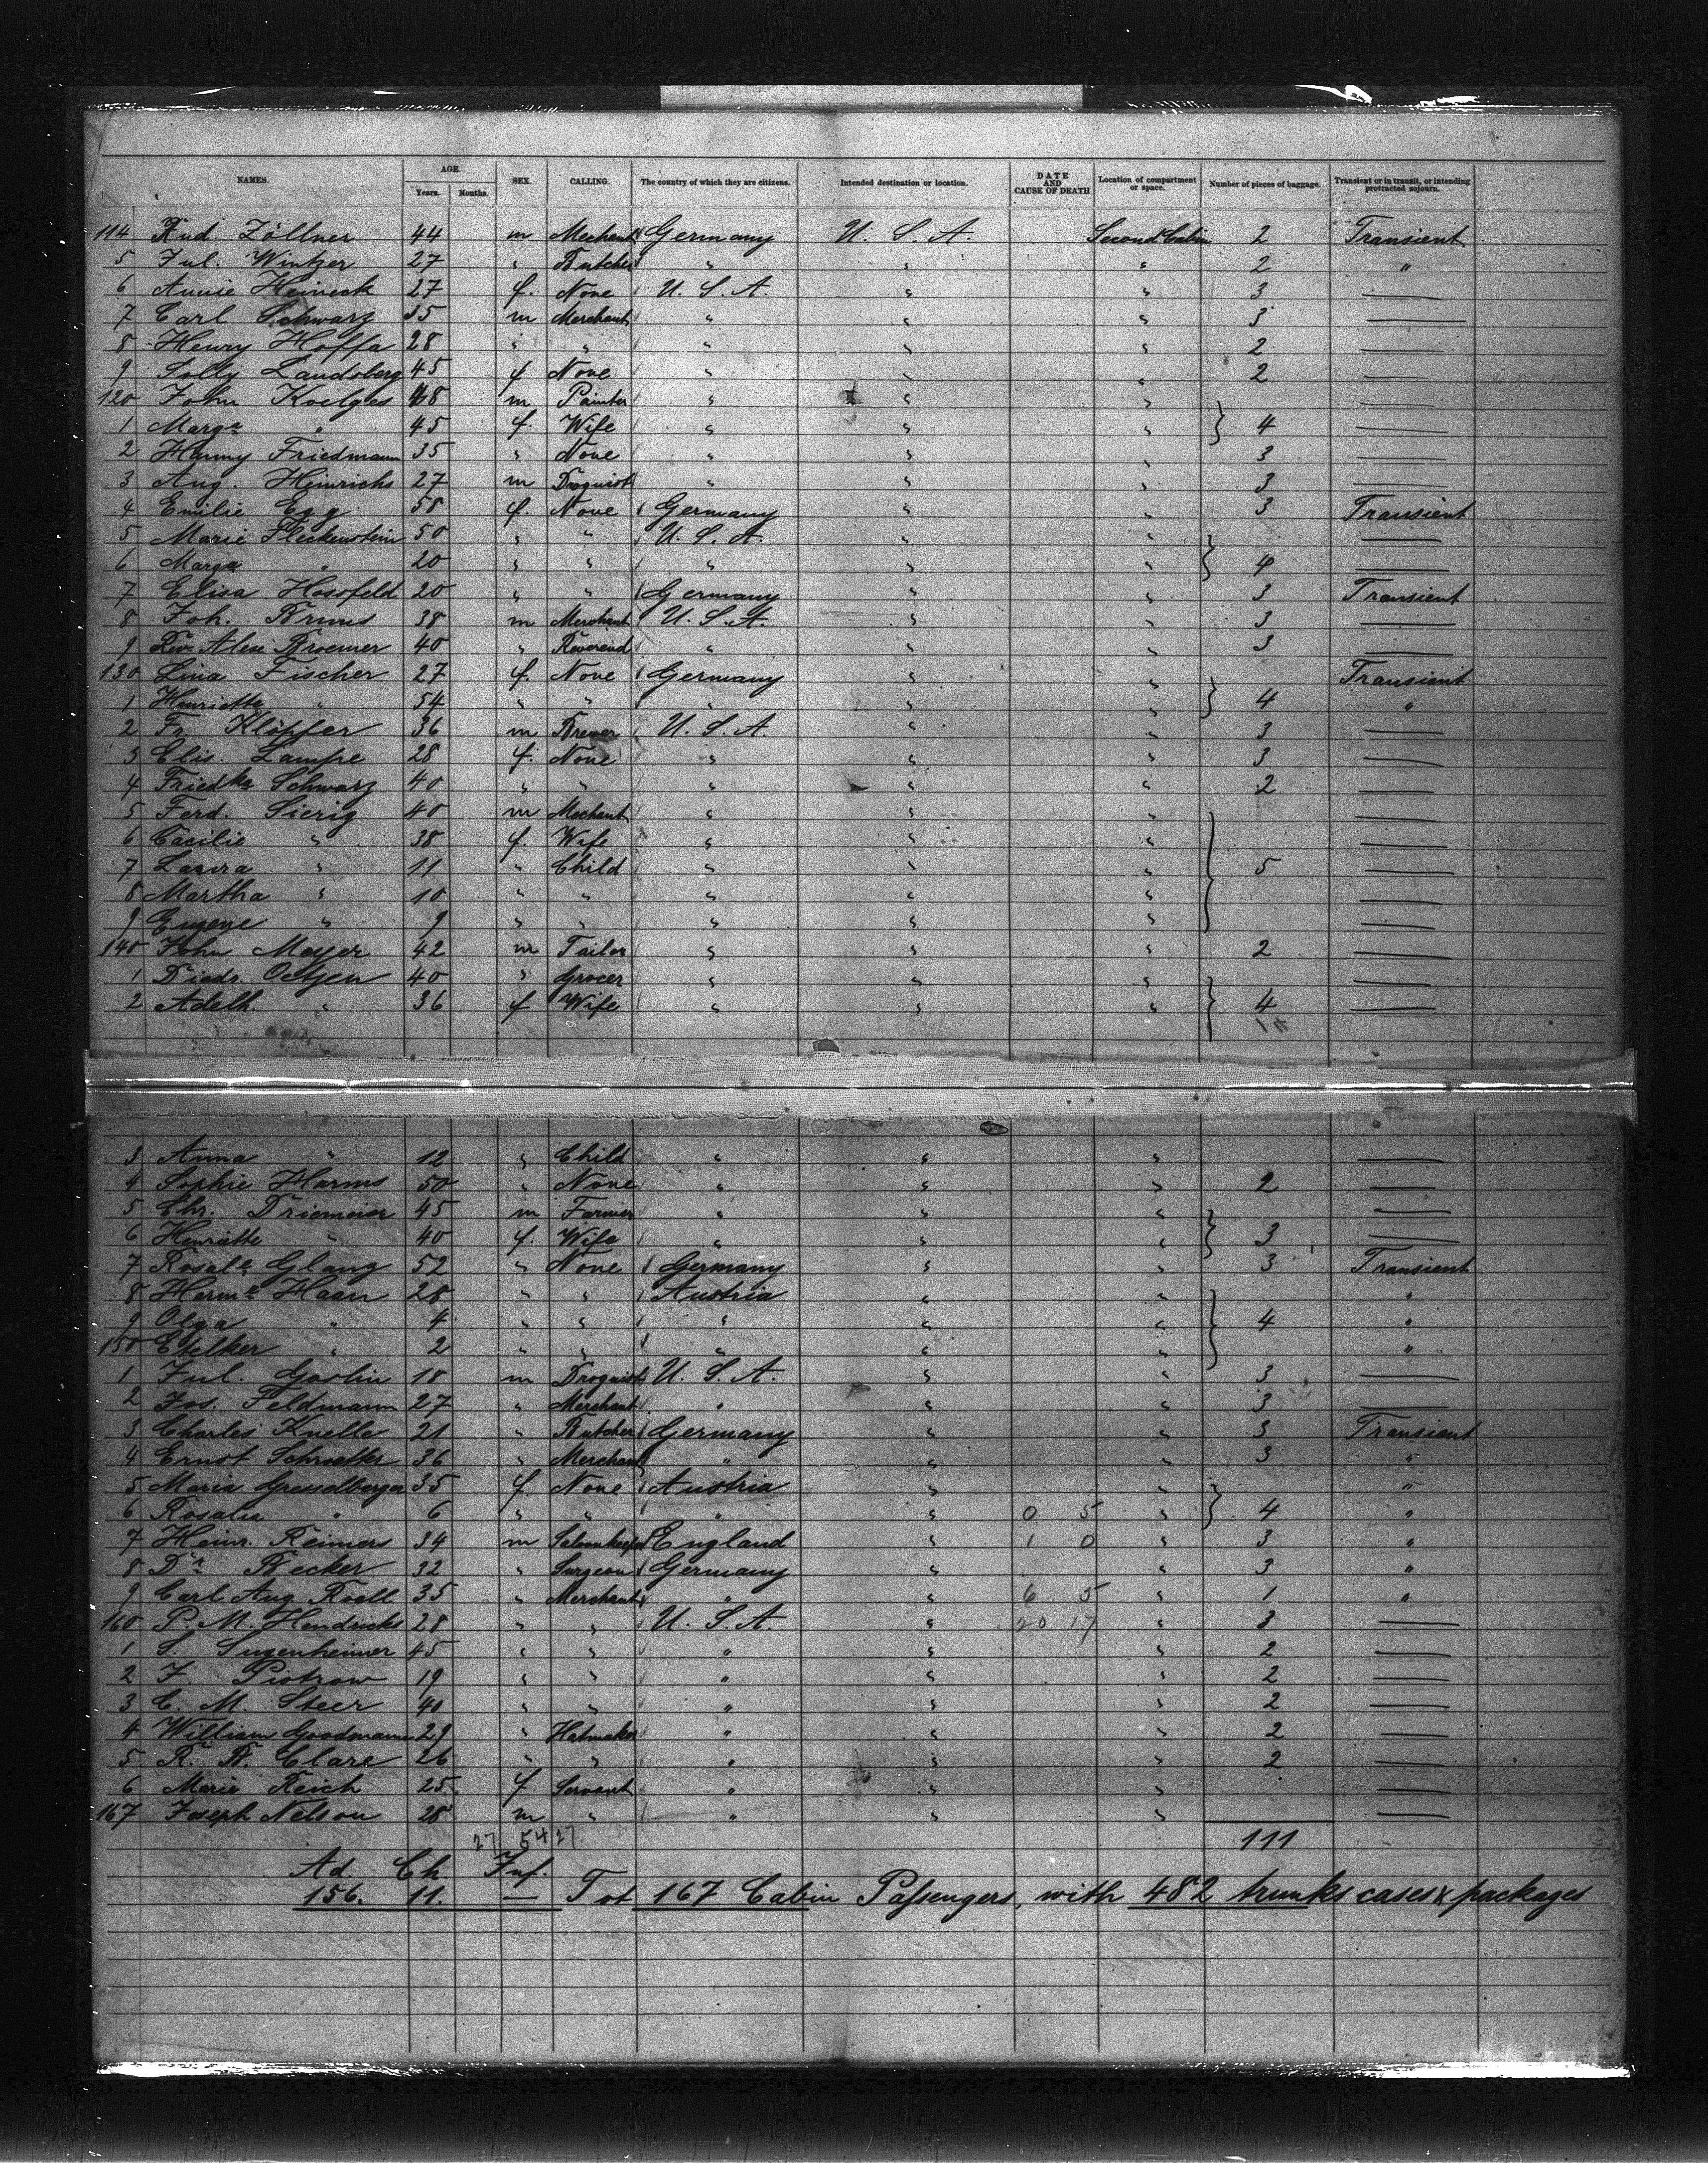 NAMES. AGE. Years. Months. SEX. CALLING. The country of which they are citizens. Intended destination or location. DATE AND CAUSE OF DEATH Location of compartment or space. Number of pieces of baggage. Transient or in transit, or intending protracted sojourn.
114 Rud. Zöllner 44 m Mechant Germany U. S. A. Second Cabin 2 Transient
5 Jul. Wintzer 27 " Butcher " " " 2 "
6 Annie Heineck 27 f. None U. S. A. " " 3 —
7 Carl Schwarz 35 m Merchant " " " 3 —
8 Henry Hoffa 28 " " " " " 2 —
9 Solly Landsberg 45 f None " " " 2 —
120 John Koelges 48 m Painter " " " —
1 Marg " 45 f. Wife " " " } 4 —
2 Hanny Friedmann 35 " None " " " 3 —
3 Aug. Heinrichs 27 m Droguist " " " 3 —
4 Emilie Egg 58 f. None Germany " " 3 Transient
5 Marie Fleckenstein 50 " " U. S. A. " " —
6 Marga " 20 " " " " " } 4 —
7 Elisa Hossfeld 20 " " Germany " " 3 Transient
8 Joh. Bruns 38 m Merchant U. S. A. " " 3 —
9 Rev. Alex Broemer 40 " Reverend " " " 3 —
130 Lina Fischer 27 f. None Germany " " Transient
1 Henriette " 54 " " " " " } 4 "
2 Fr. Klöpfer 36 m Brewer U. S. A. " " 3 —
3 Elis. Lampe 28 f. None " " " 3 —
4 Friedka Schwarz 40 " " " " " 2 —
5 Ferd. Sierig 40 m Mechant " " " —
6 Cäcilie " 38 f. Wife " " " —
7 Laura " 11 " Child " " " } 5 —
8 Martha " 10 " " " " " —
9 Eugene " 9 " " " " " —
140 John Meyer 42 m Tailor " " " 2 —
1 Diedr. Oetjen 40 " Grocer " " " —
2 Adelh. " 36 f Wife " " " } 4 —
3 Anna " 12 " Child " " " —
4 Sophie Harms 50 " None " " " 2 —
5 Chr. Driemeier 45 m Farmer " " " —
6 Henriette " 40 f. Wife " " " } 3 —
7 Rosale Glanz 52 " None Germany " " 3 Transient
8 Herme Haan 28 " " Austria " " "
9 Olga " 4 " " " " " } 4 "
150 Etelker " 2 " " " " " "
1 Jul. Gorlin 18 m Droguist U. S. A. " " 3 —
2 Jos. Feldmann 27 " Merchant " " " 3 —
3 Charles Knelle 21 " Butcher Germany " " 3 Transient
4 Ernst Schroetter 36 " Merchant " " " 3 "
5 Maria Gresselberger 35 f. None Austria " " "
6 Rosalia " 6 " " " " 0 5 " } 4 "
7 Heinr. Reimers 34 m Saloonkeeper England " 1 0 " 3 "
8 Dr Becker 32 " Surgeon Germany " " 3 "
9 Carl Aug. Roall 35 " Merchant " " 6 5 " 1 "
160 P. M. Hendricks 28 " " U. S. A. " 20 17 " 3 —
1 S. Sugenheimer 45 " " " " " 2 —
2 J. Piotrow 19 " " " " " 2 —
3 C. M. Steer 40 " " " " " 2 —
4 William Goodmann 29 " Hatmaker " " " 2 —
5 R. B. Clare 26 " " " " " 2 —
6 Marie Reich 25 f Servant " " " —
167 Joseph Nelson 28 m " " " " —
27 54 27 111
Ad Ch Inf.
156. 11. — Tot 167 Cabin Passengers, with 482 trunks cases & packages